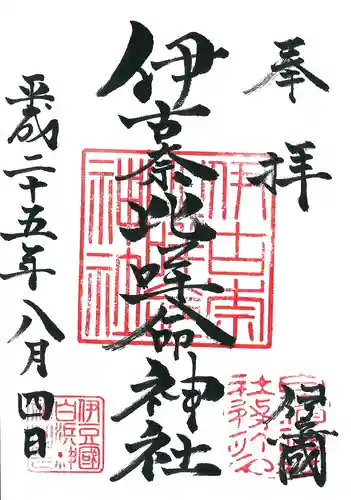 奉拝
伊豆國
伊古奈比咩命神社
平成二十五年八月四日
伊古奈
神社
伊豆國
白浜神